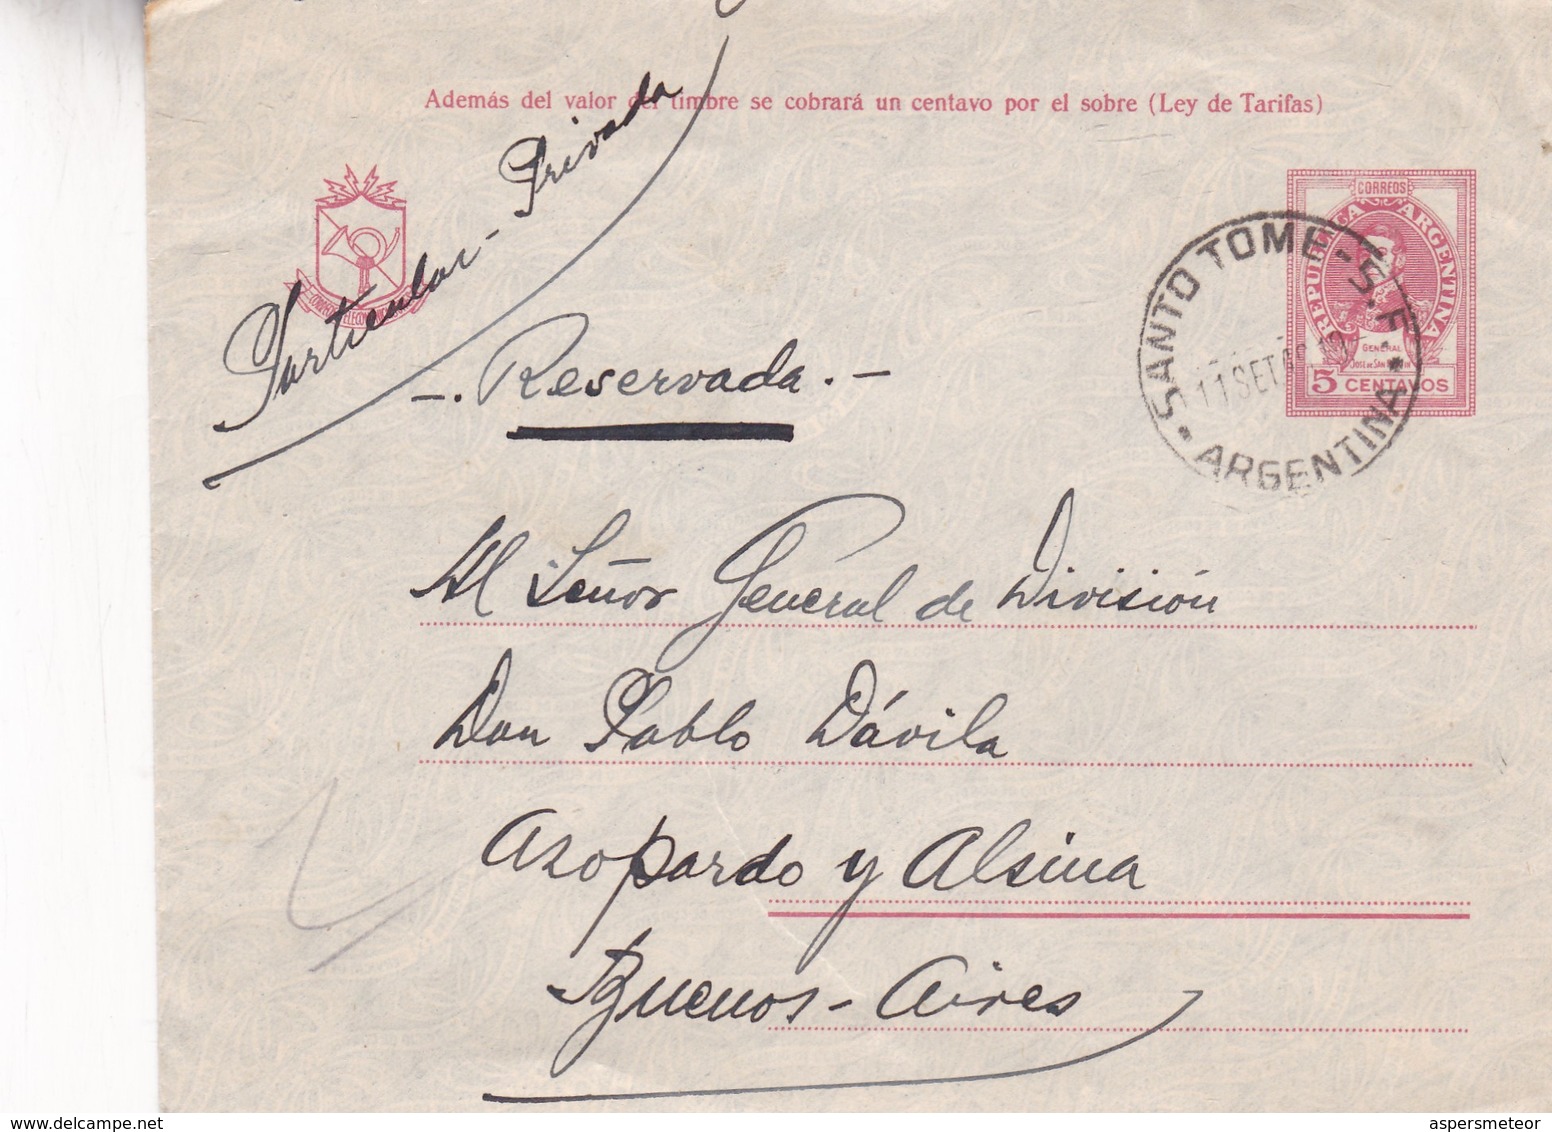 Además del valor del timbre se cobrará un centavo por el sobre (Ley de Tarifas)
Particular - Privada
CORREOS
REPUBLICA ARGENTINA
GENERAL
JOSÉ DE SAN MARTIN
5 CENTAVOS
SANTO TOME - S. F.
11 SET
ARGENTINA
-. Reservada. -
Al Señor General de División
Don Pablo Dávila
Azopardo y Alsina
Buenos - Aires
www.delcampe.net
aspersmeteor